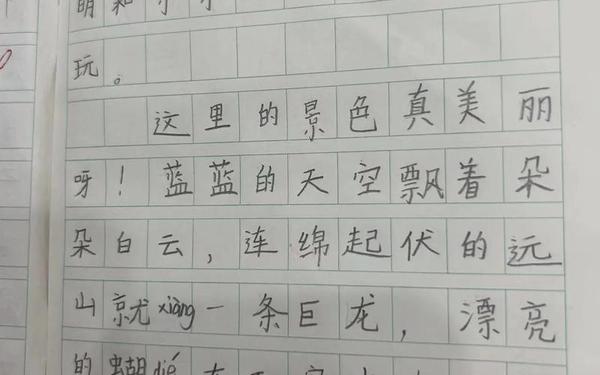 玩。
这里的景色真美丽
呀！蓝蓝的天空飘着朵
朵白云，连绵起伏的远
山就xiàng一条巨龙，漂亮
的蝴dié